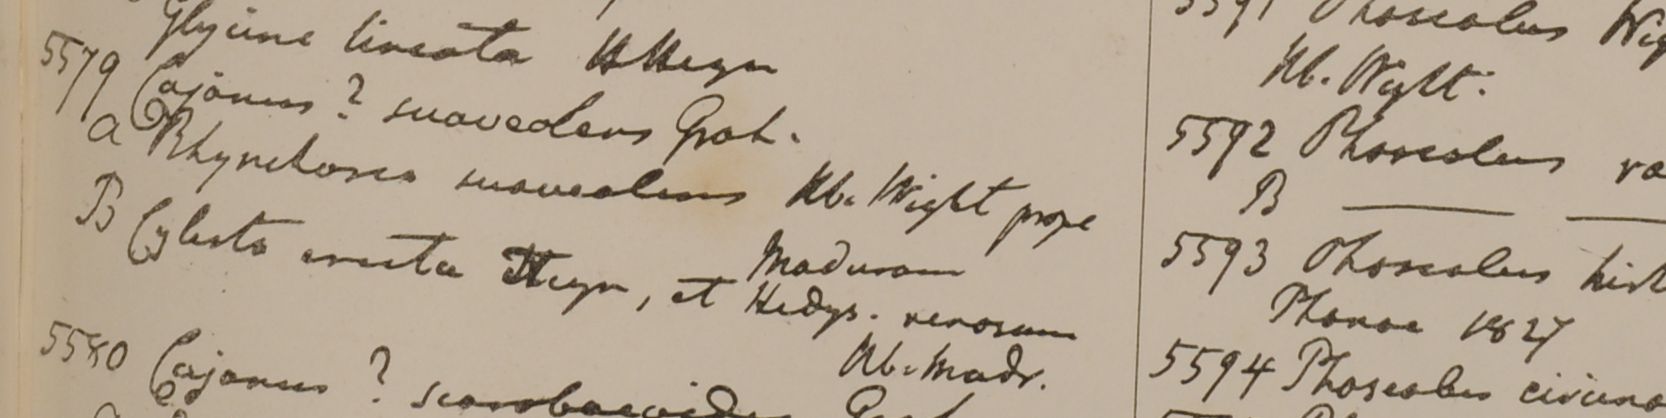 Glycine lineata HHeyn
5579 Cajanus ? suaveolens Grah.
a Rhynchosia suaveolens Hb. Wight prope
Maduram
B Cylista erecta Heyn, et Hedys. venosum
Hb. Madr.
5580 Cajanus ? scarabaeoides Grah
5591 Phaseolus Wig
Hb. Wight.
5592 Phaseolus
B — —
5593 Phaseolus hirt
Phanoe 1827
5594 Phaseolus circina